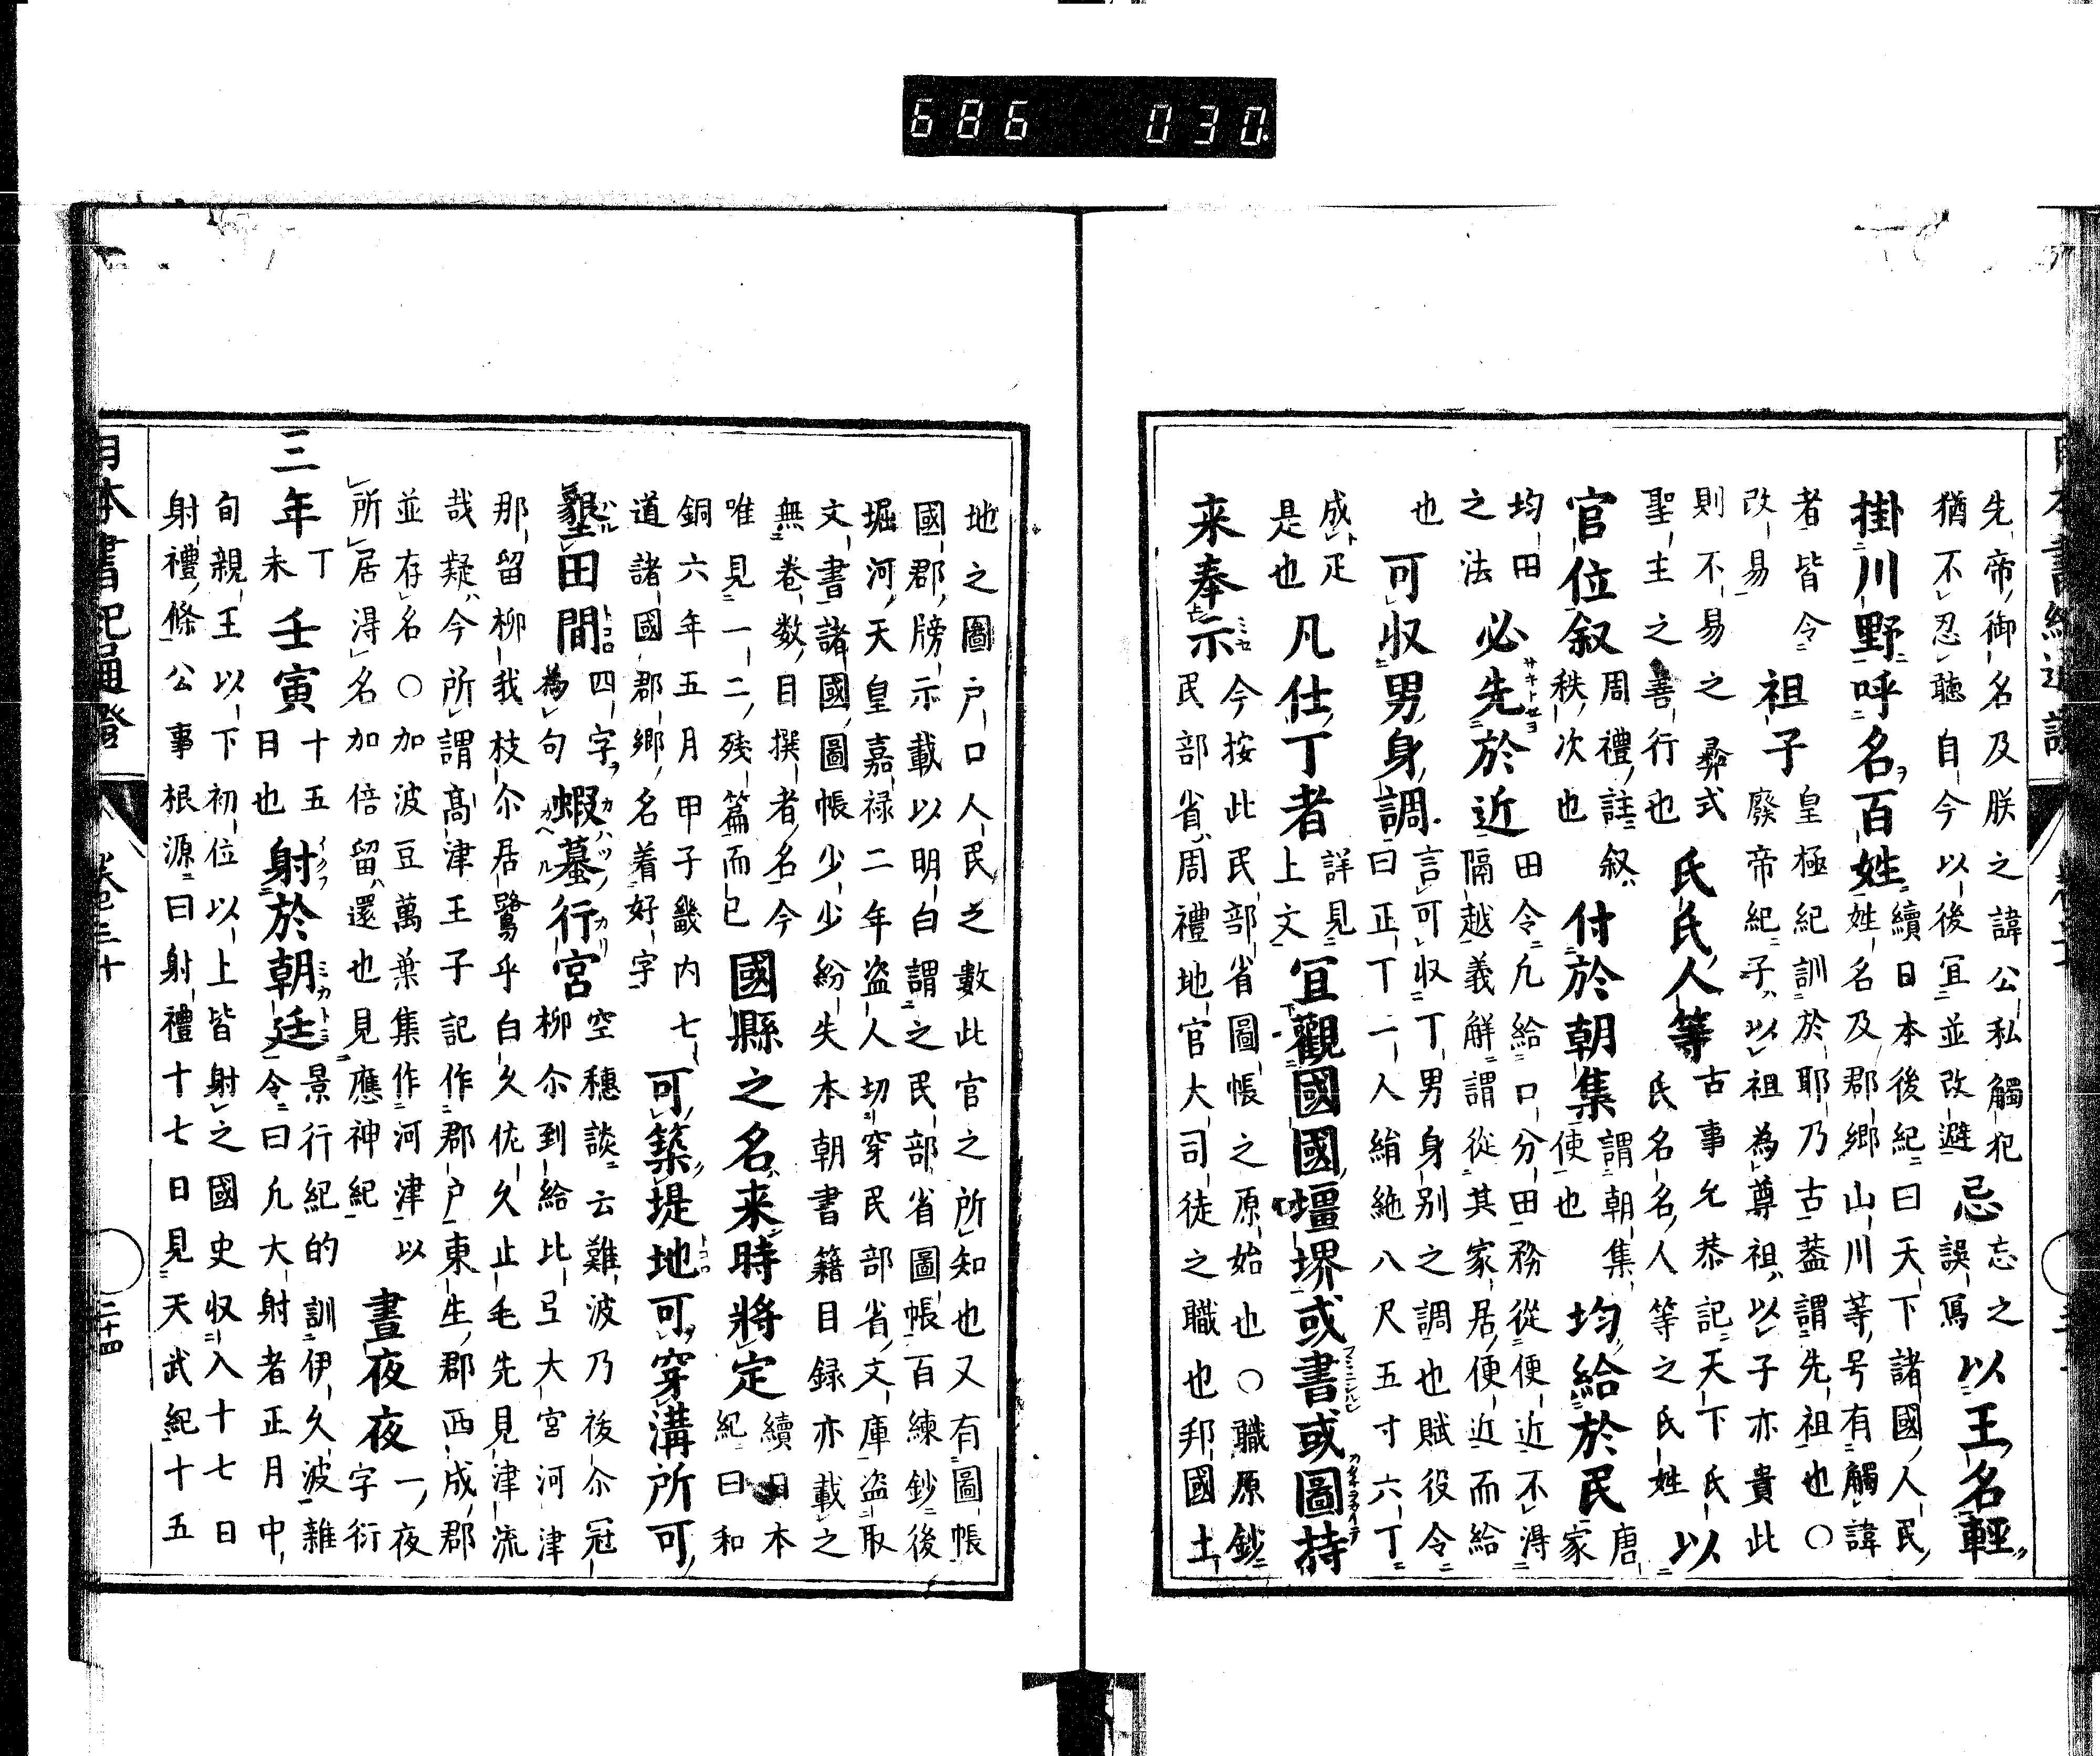 686 030.
先帝御名及朕之諱公私觸犯
猶不忍聽自今以後宜並改避
忌忘之
誤寫
以王名輕
掛川野呼名百姓
續日本後紀曰天下諸國人民
姓名及郡郷山川等号有觸諱
者皆令
改易
祖子
皇極紀訓於耶乃古蓋謂先祖也〇
廢帝紀子以祖為尊祖以子亦貴此
則不易之彛式
聖主之善行也
氏氏人等
古事允恭記天下氏
氏名名人等之氏姓
以
官位叙
周禮註叙
秩次也
付於朝集
謂朝集
使也
均給於民
唐
家
均田
之法
必先於近
田令凡給口分田務從便近不淂
隔越義解謂從其家居便近而給
也
可収男身調
言可収丁男身別之調也賦役令
曰正丁一人絹絁八尺五寸六丁
成疋
是也
凡仕丁者
詳見
上文
宜觀國國壃堺或書或圖持
来奉示
今按此民部省圖帳之原始也〇職原鈔
民部省周禮地官大司徒之職也邦國土
地之圖戸口人民之數此官之所知也又有圖帳
國郡牓示載以明白謂之民部省圖帳百練鈔後
堀河天皇嘉禄二年盗人切穿民部省文庫盗取
文書諸國圖帳少少紛失本朝書籍目録亦載之
無巻数目撰者名今
唯見一二残篇而已
國縣之名来時將定
續日本
紀曰和
銅六年五月甲子畿内七
道諸國郡郷名着好字
可築堤地可穿溝所可
墾田間
四字
為句
蝦蟇行宮
空穗談云難波乃後尒冠
柳尒到給比弖大宮河津
那留柳我枝尒居鷺乎白久佐久止毛先見津流
哉疑今所謂髙津王子記作郡戸東生郡西成郡
並存名〇加波豆萬葉集作河津以
所居淂名加倍留還也見應神紀
晝夜夜
一夜
字衍
三年
丁
未
壬寅
十五
日也
射於朝廷
景行紀的訓伊久波雜
令曰凡大射者正月中
旬親王以下初位以上皆射之國史収入十七日
射禮條公事根源曰射禮十七日見天武紀十五
日本書紀通證
卷三十
二十四